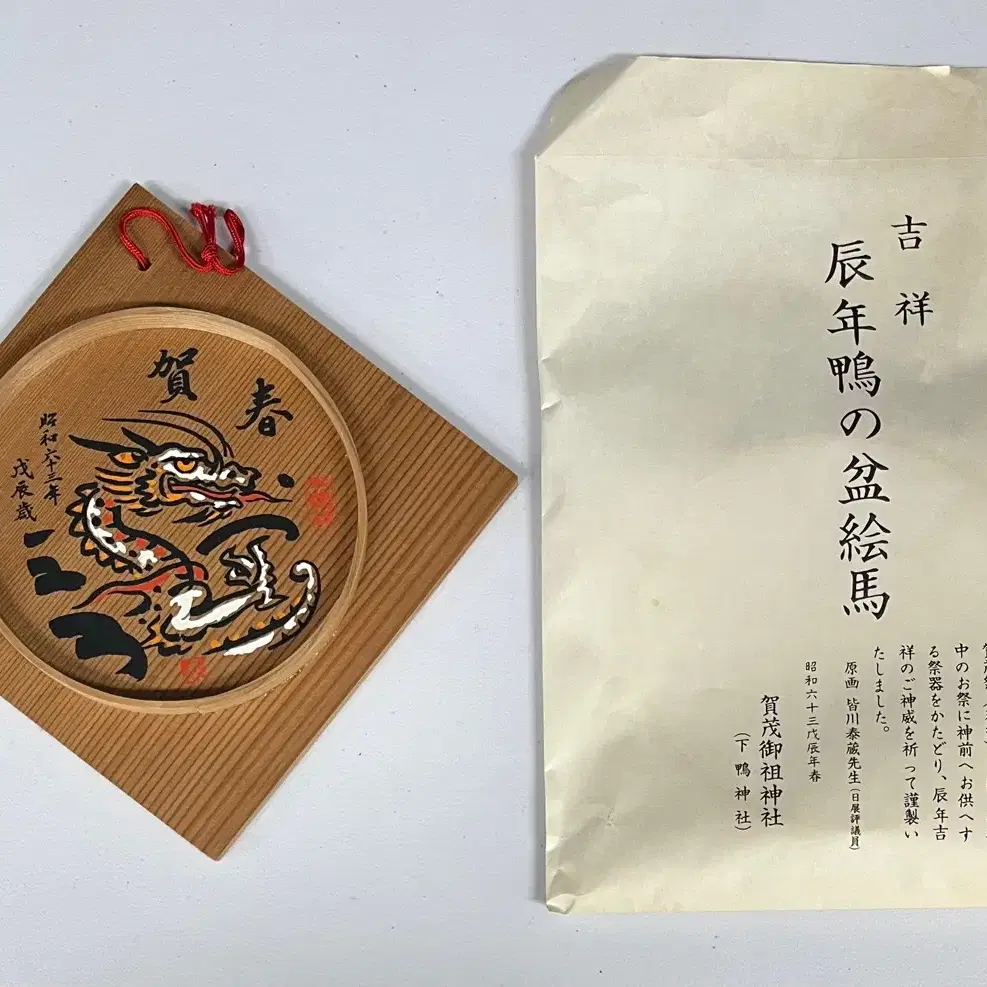 賀春
昭和六十三年
戊辰歳
吉祥
辰年鴨の盆絵馬
中のお祭に神前へお供へす
る祭器をかたどり、辰年吉
祥のご神威を祈って謹製い
たしました。
原画 皆川泰蔵先生(日展評議員)
昭和六十三戊辰年春
賀茂御祖神社
(下鴨神社)